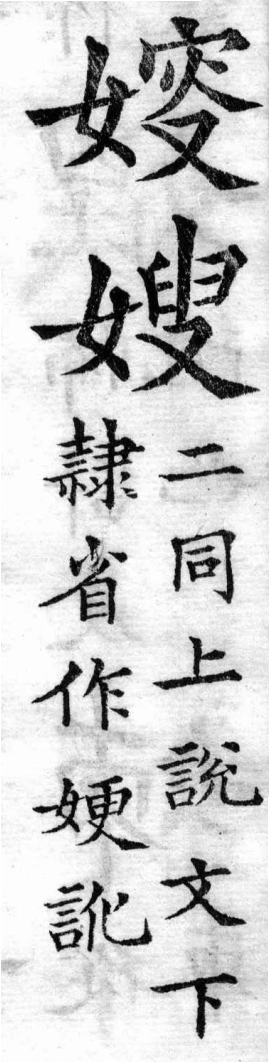 㛮嫂
二同上說文下
隸省作㛐訛